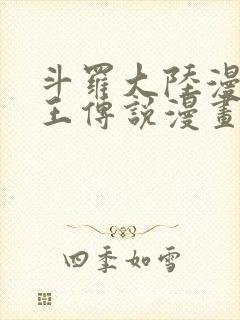 斗羅大陸漫
王傳說漫畫
四季如雪